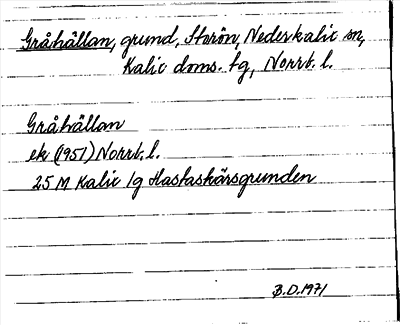 Gråhällan, grund, Storön, Nederkalix sn,
Kalix doms. tg, Norrb. l.
Gråhällan
ek (1951) Norrb. l.
25 M Kalix lg Hastaskärsgrunden
B.D. 1971